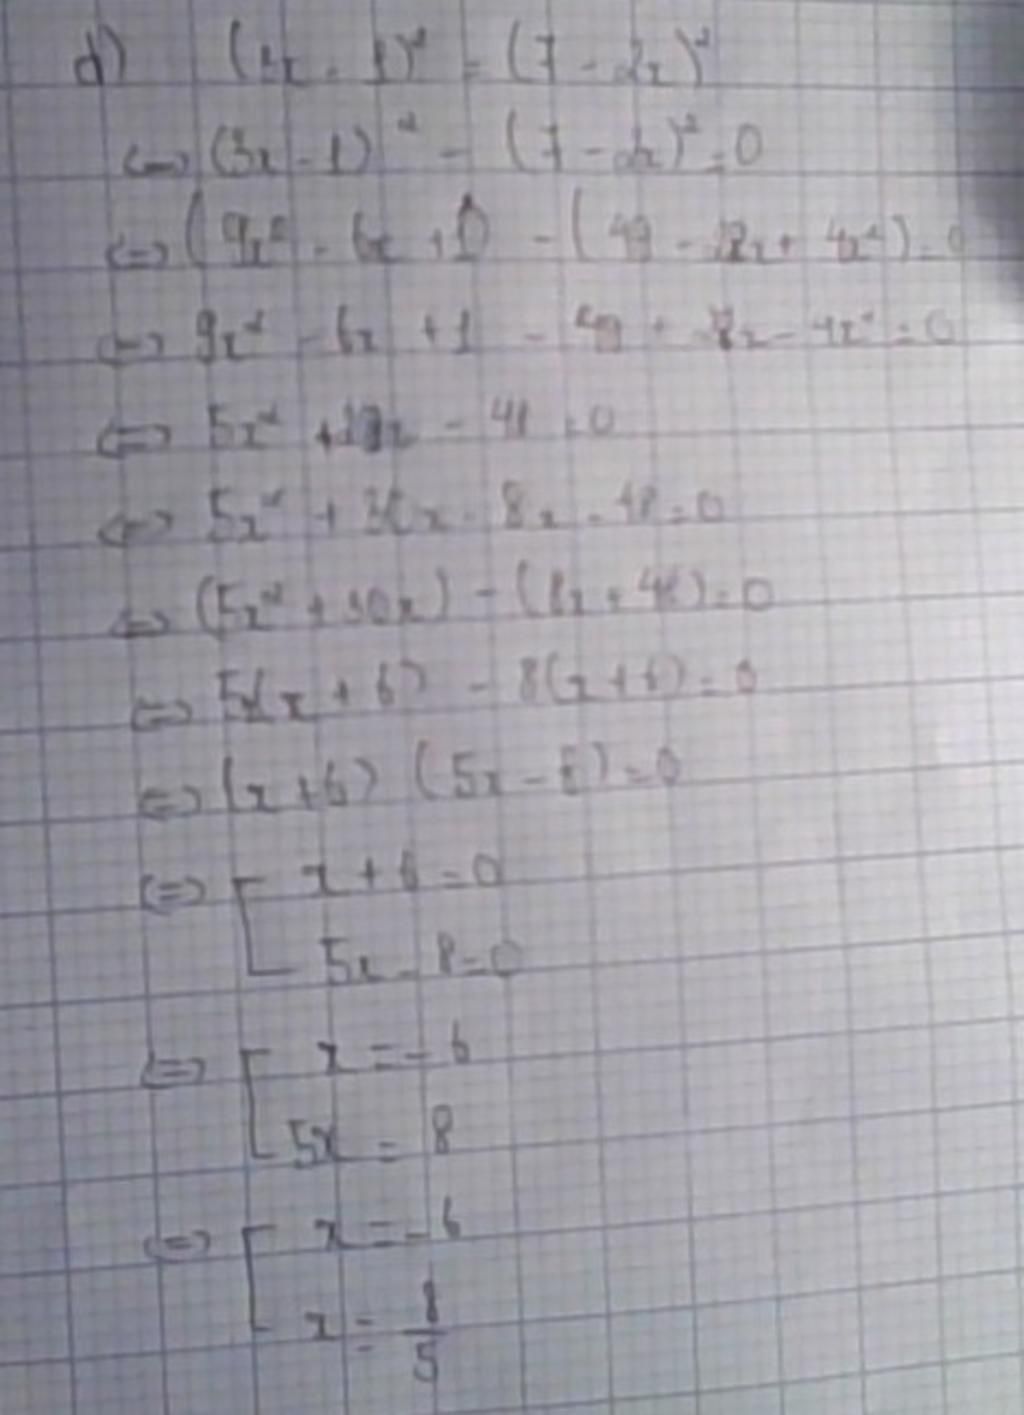 d) (3x - 1)² = (7 - 2x)²
<=> (3x - 1)² - (7 - 2x)² = 0
<=> (9x² - 6x + 1) - (49 - 28x + 4x²) = 0
<=> 9x² - 6x + 1 - 49 + 28x - 4x² = 0
<=> 5x² + 22x - 48 = 0
<=> 5x² + 30x - 8x - 48 = 0
<=> (5x² + 30x) - (8x + 48) = 0
<=> 5x(x + 6) - 8(x + 6) = 0
<=> (x + 6) (5x - 8) = 0
<=> [ x + 6 = 0
5x - 8 = 0
<=> [ x = - 6
5x = 8
<=> [ x = - 6
x = 8/5